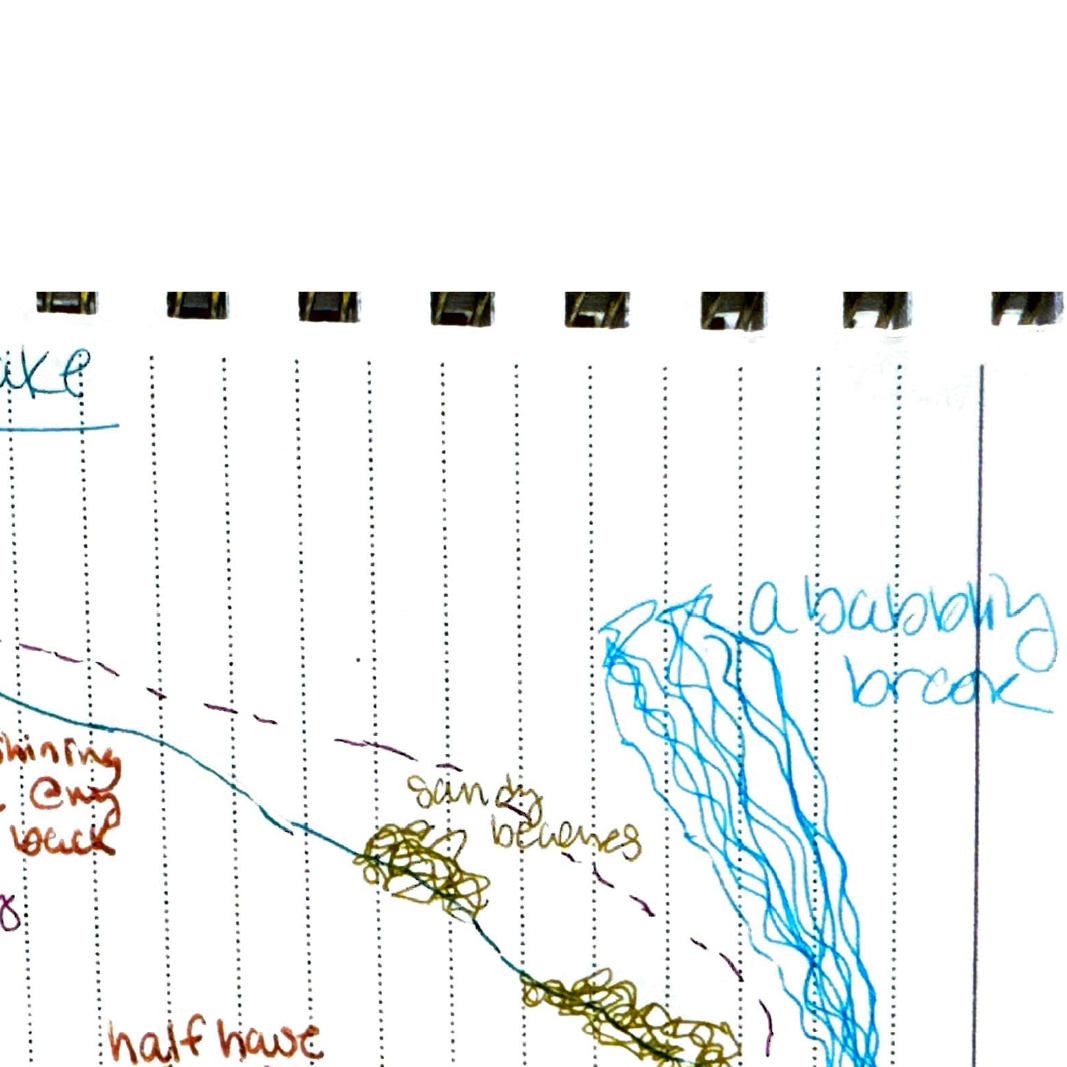 ake
a babbling
brook
shining
@ my
back
sandy
beaches
half have